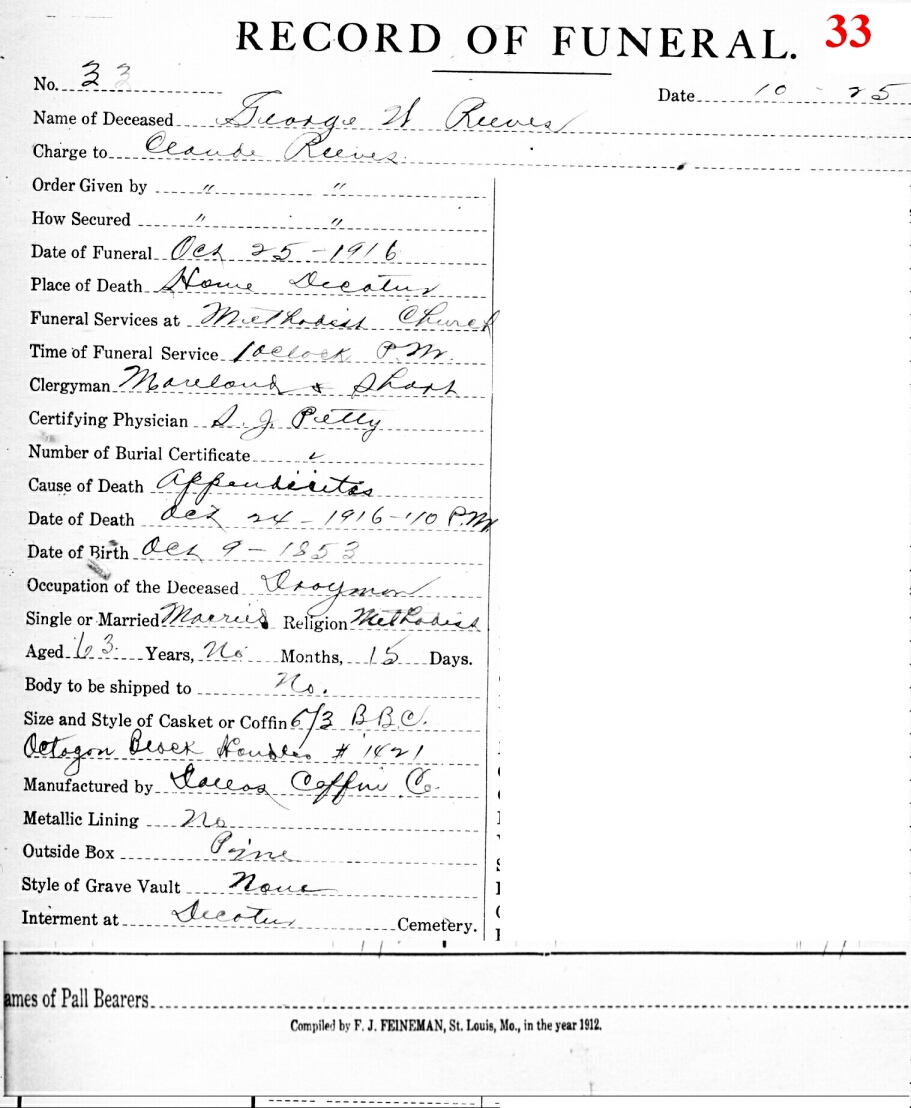 RECORD OF FUNERAL. 33
No. 33
Date 10 - 25
Name of Deceased George W Reeves
Charge to Claude Reeves.
Order Given by " "
How Secured " "
Date of Funeral Oct 25 - 1916
Place of Death Home Decatur
Funeral Services at Methodist Church
Time of Funeral Service 1 oclock P.M.
Clergyman Moreland & Short
Certifying Physician S. J. Petty
Number of Burial Certificate
Cause of Death Appendicitas
Date of Death Oct 24 - 1916 - 10 P.M
Date of Birth Oct 9 - 1853
Occupation of the Deceased Drayman
Single or Married Married Religion Methodist
Aged 63 Years, No Months, 15 Days.
Body to be shipped to No.
Size and Style of Casket or Coffin 6/3 B.B.C.
Octagon Black Handles # 1421
Manufactured by Dallas Coffin Co.
Metallic Lining No
Outside Box Pine
Style of Grave Vault None
Interment at Decatur Cemetery.
ames of Pall Bearers
Compiled by F. J. FEINEMAN, St. Louis, Mo., in the year 1912.